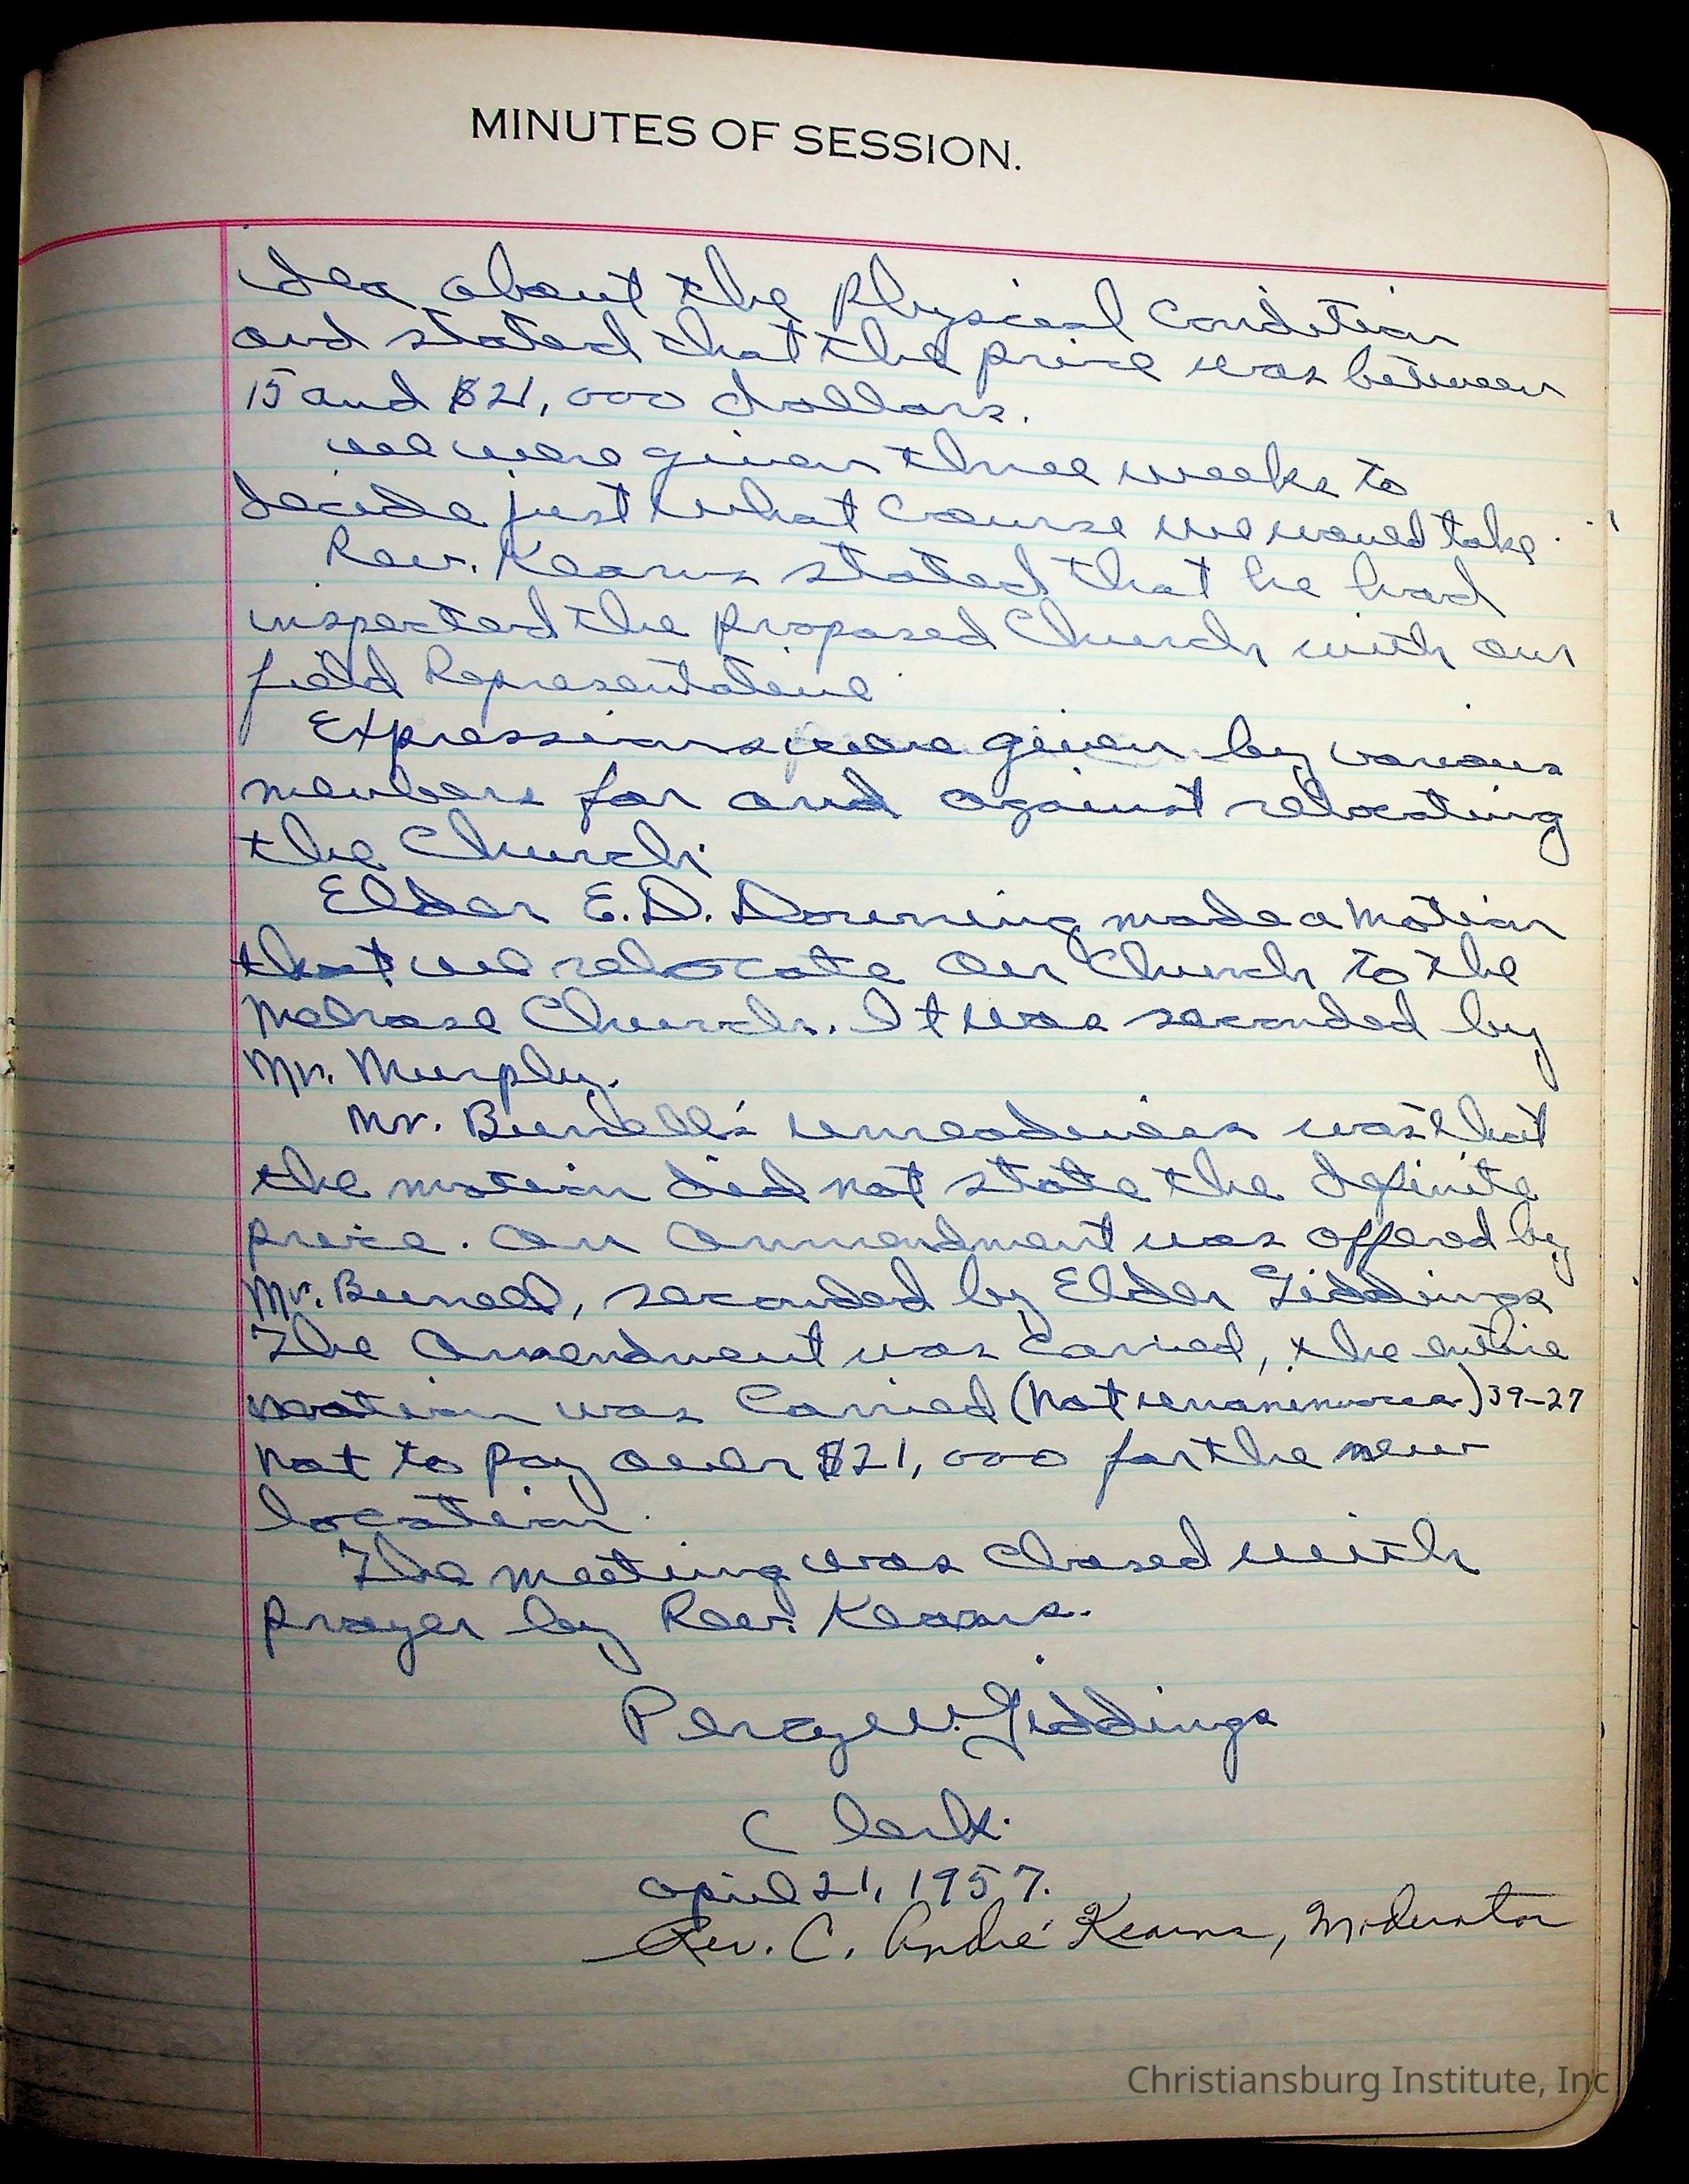 MINUTES OF SESSION.
idea about the Physical Condition
and stated that the price was between
15 and $21,000 dollars.
we were given three weeks to
decide just what course we would take.
Rev. Kearns stated that he had
inspected the proposed Church with our
field Representative.
Expressions were given by various
members for and against relocating
the Church.
Elder E. D. Downing made a motion
that we relocate our Church to the
Melrose Church. It was seconded by
Mr. Murphy.
Mr. Burell's unreadiness was that
the motion did not state the definite
price. An Ammendment was offered by
Mr. Burell, seconded by Elder Giddings
The Amendment was Carried, the entire
motion was Carried (not unanimous) 39-27
not to pay over $21,000 for the new
location.
The meeting was closed with
prayer by Rev. Kearns.
Percy W. Giddings
Clerk.
April 21, 1957.
Rev. C. André Kearns, Moderator
Christiansburg Institute, Inc